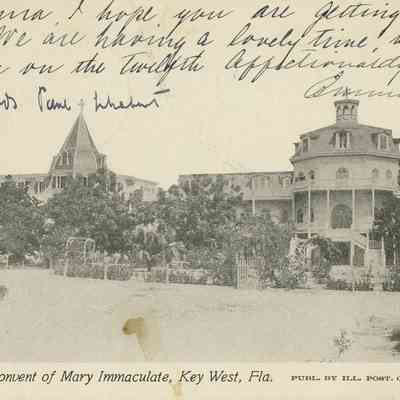 I hope you are getting
We are having a lovely time,
on the twelfth Affectionately
Paul
onvent of Mary Immaculate, Key West, Fla. PUBL. BY ILL. POST. C